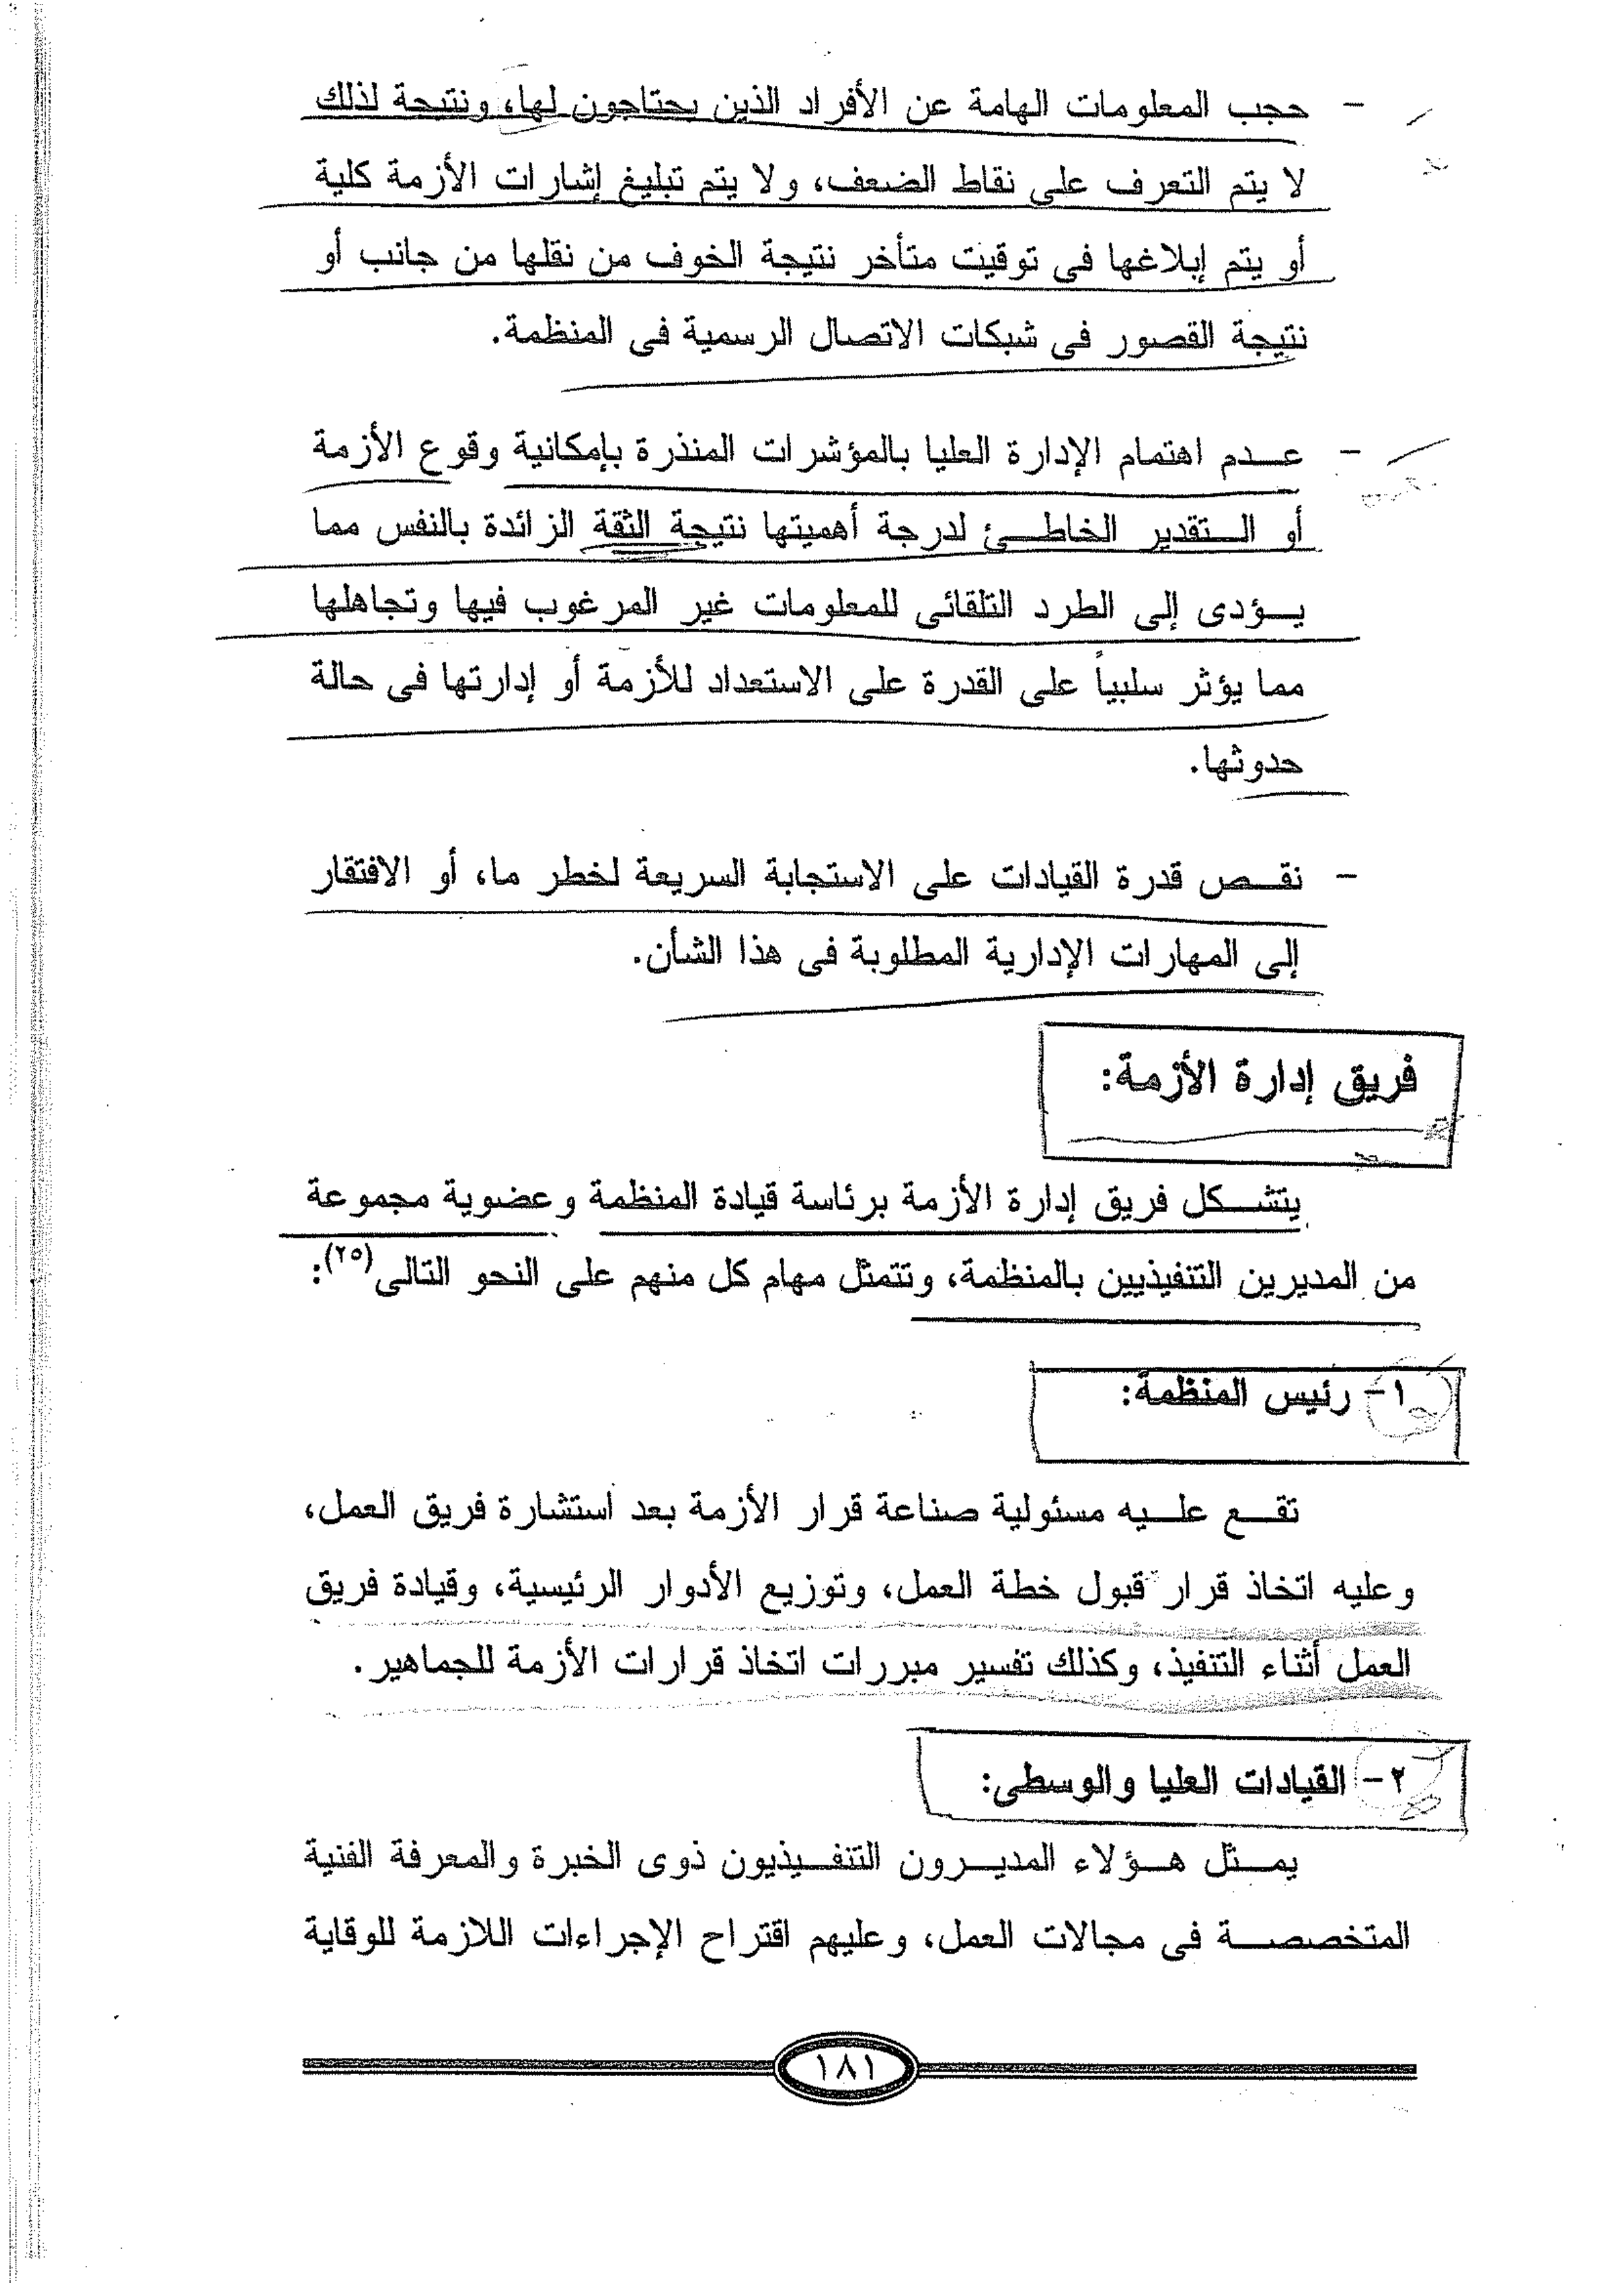 - حجب المعلومات الهامة عن الأفراد الذين يحتاجون لها، ونتيجة لذلك
لا يتم التعرف على نقاط الضعف، ولا يتم تبليغ إشارات الأزمة كلية
أو يتم إبلاغها فى توقيت متأخر نتيجة الخوف من نقلها من جانب أو
نتيجة القصور فى شبكات الاتصال الرسمية فى المنظمة.
- عدم اهتمام الإدارة العليا بالمؤشرات المنذرة بإمكانية وقوع الأزمة
أو التقدير الخاطئ لدرجة أهميتها نتيجة الثقة الزائدة بالنفس مما
يؤدى إلى الطرد التلقائى للمعلومات غير المرغوب فيها وتجاهلها
مما يؤثر سلبياً على القدرة على الاستعداد للأزمة أو إدارتها فى حالة
حدوثها.
- نقص قدرة القيادات على الاستجابة السريعة لخطر ما، أو الافتقار
إلى المهارات الإدارية المطلوبة فى هذا الشأن.
فريق إدارة الأزمة:
يتشكل فريق إدارة الأزمة برئاسة قيادة المنظمة وعضوية مجموعة
من المديرين التنفيذيين بالمنظمة، وتتمثل مهام كل منهم على النحو التالى(٢٥):
١- رئيس المنظمة:
تقع عليه مسئولية صناعة قرار الأزمة بعد استشارة فريق العمل،
وعليه اتخاذ قرار قبول خطة العمل، وتوزيع الأدوار الرئيسية، وقيادة فريق
العمل أثناء التنفيذ، وكذلك تفسير مبررات اتخاذ قرارات الأزمة للجماهير.
٢- القيادات العليا والوسطى:
يمثل هؤلاء المديرون التنفيذيون ذوى الخبرة والمعرفة الفنية
المتخصصة فى مجالات العمل، وعليهم اقتراح الإجراءات اللازمة للوقاية
١٨١